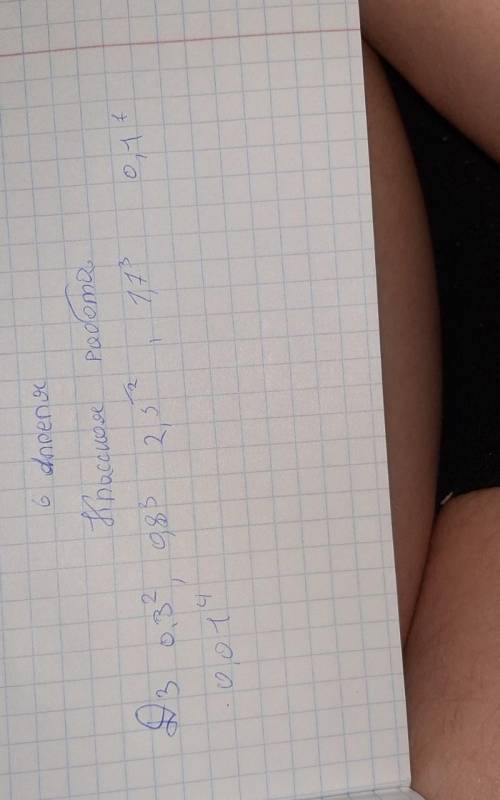 6 апреля
Классная работа
ДЗ 0,3², 0,8³ 2,3², 1,7³ 0,1⁷
0,01⁴